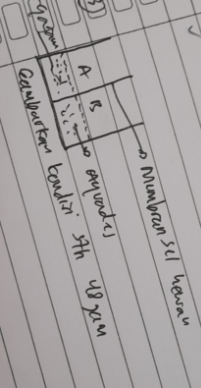 A
B
Membran sel hewan
aquades
Gambarkan kondisi stlh 48 jam